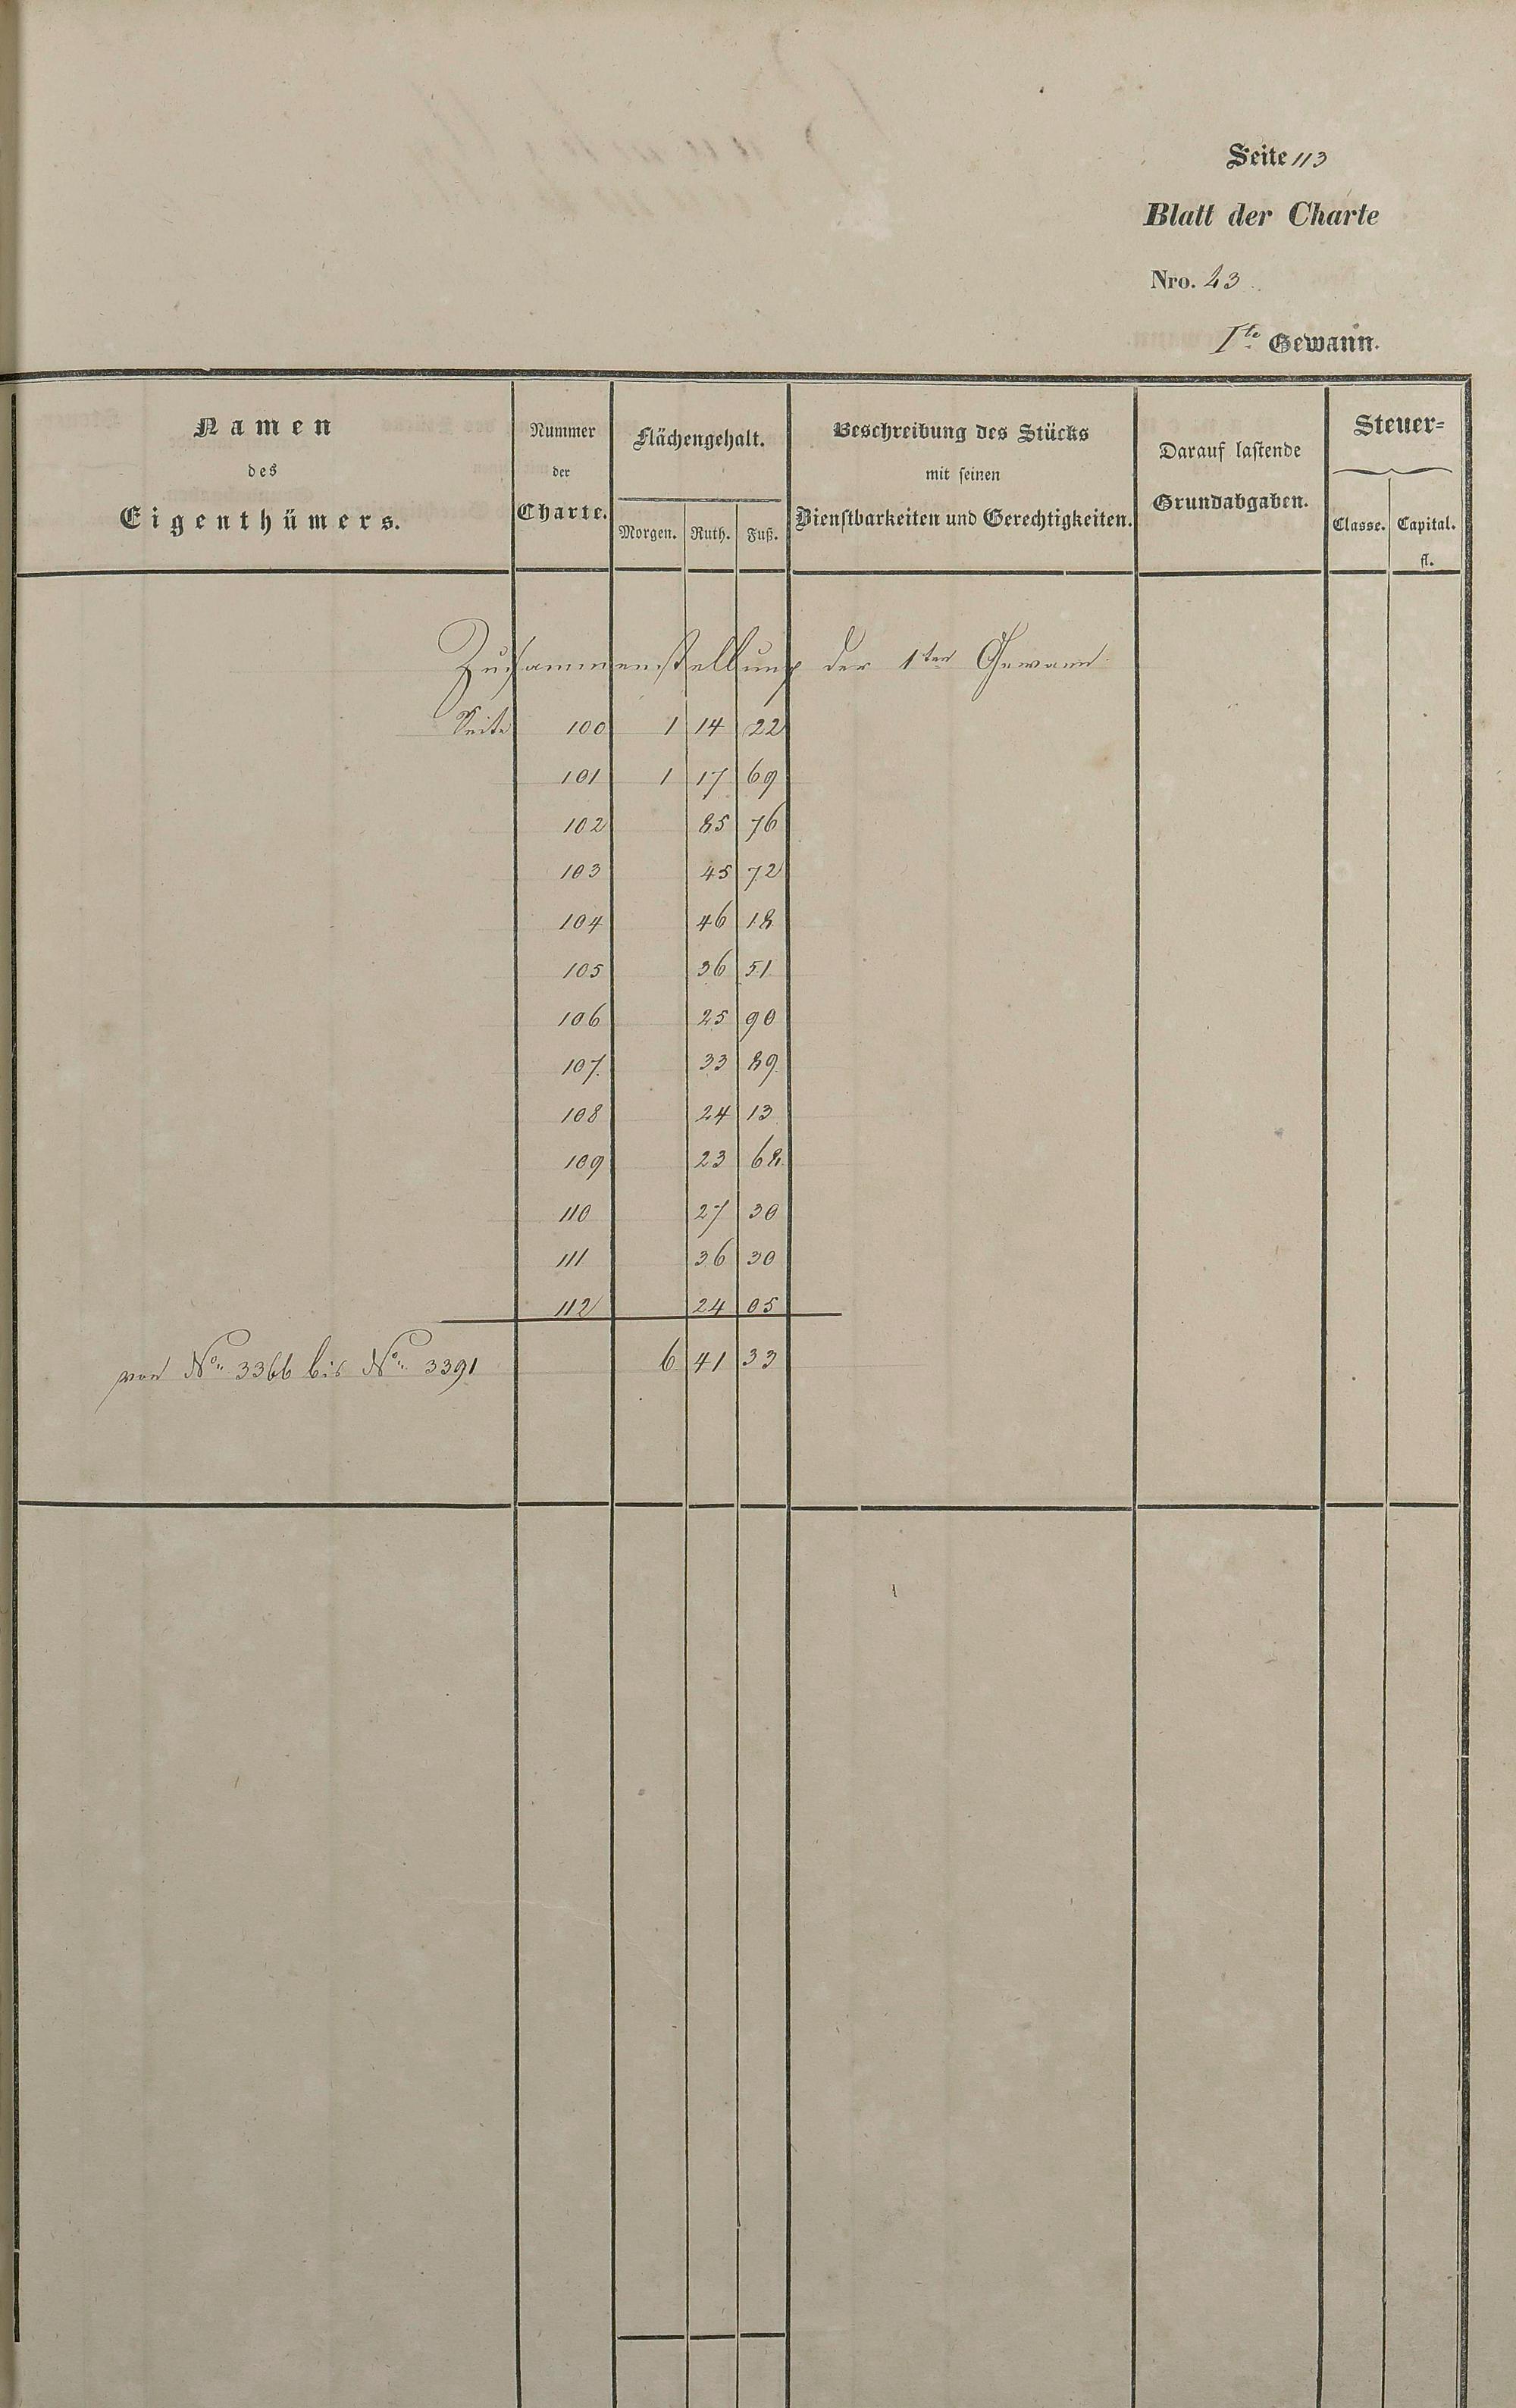 Seite 113
Blatt der Charte
Nro. 43.
I.te Gewann.
Namen des Eigenthümers.
Nummer der Charte.
Flächengehalt.
Morgen. Ruth. Fuß.
Beschreibung des Stücks mit seinen Dienstbarkeiten und Gerechtigkeiten.
Darauf lastende Grundabgaben.
Steuer=
Classe. Capital. fl.
Zusammenstellung der 1ten Gewann.
Seite 100 1 14 22
101 1 17 69
102 85 76
103 45 72
104 46 18
105 36 51
106 25 90
107. 33 89
108 24 13
109 23 68
110 27 30
111 36 30
112 24 05
von No. 3366 bis No. 3391 6 41 33